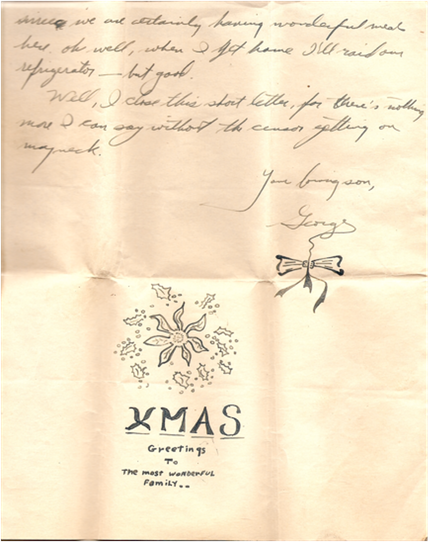 since we are certainly having wonderful meals
here. oh well, when I get home I'll raid our
refrigerator — but good.
Well, I close this short letter, for there's nothing
more I can say without the censor getting on
my neck.
Your loving son,
George
XMAS
Greetings
To
The most wonderful
Family..